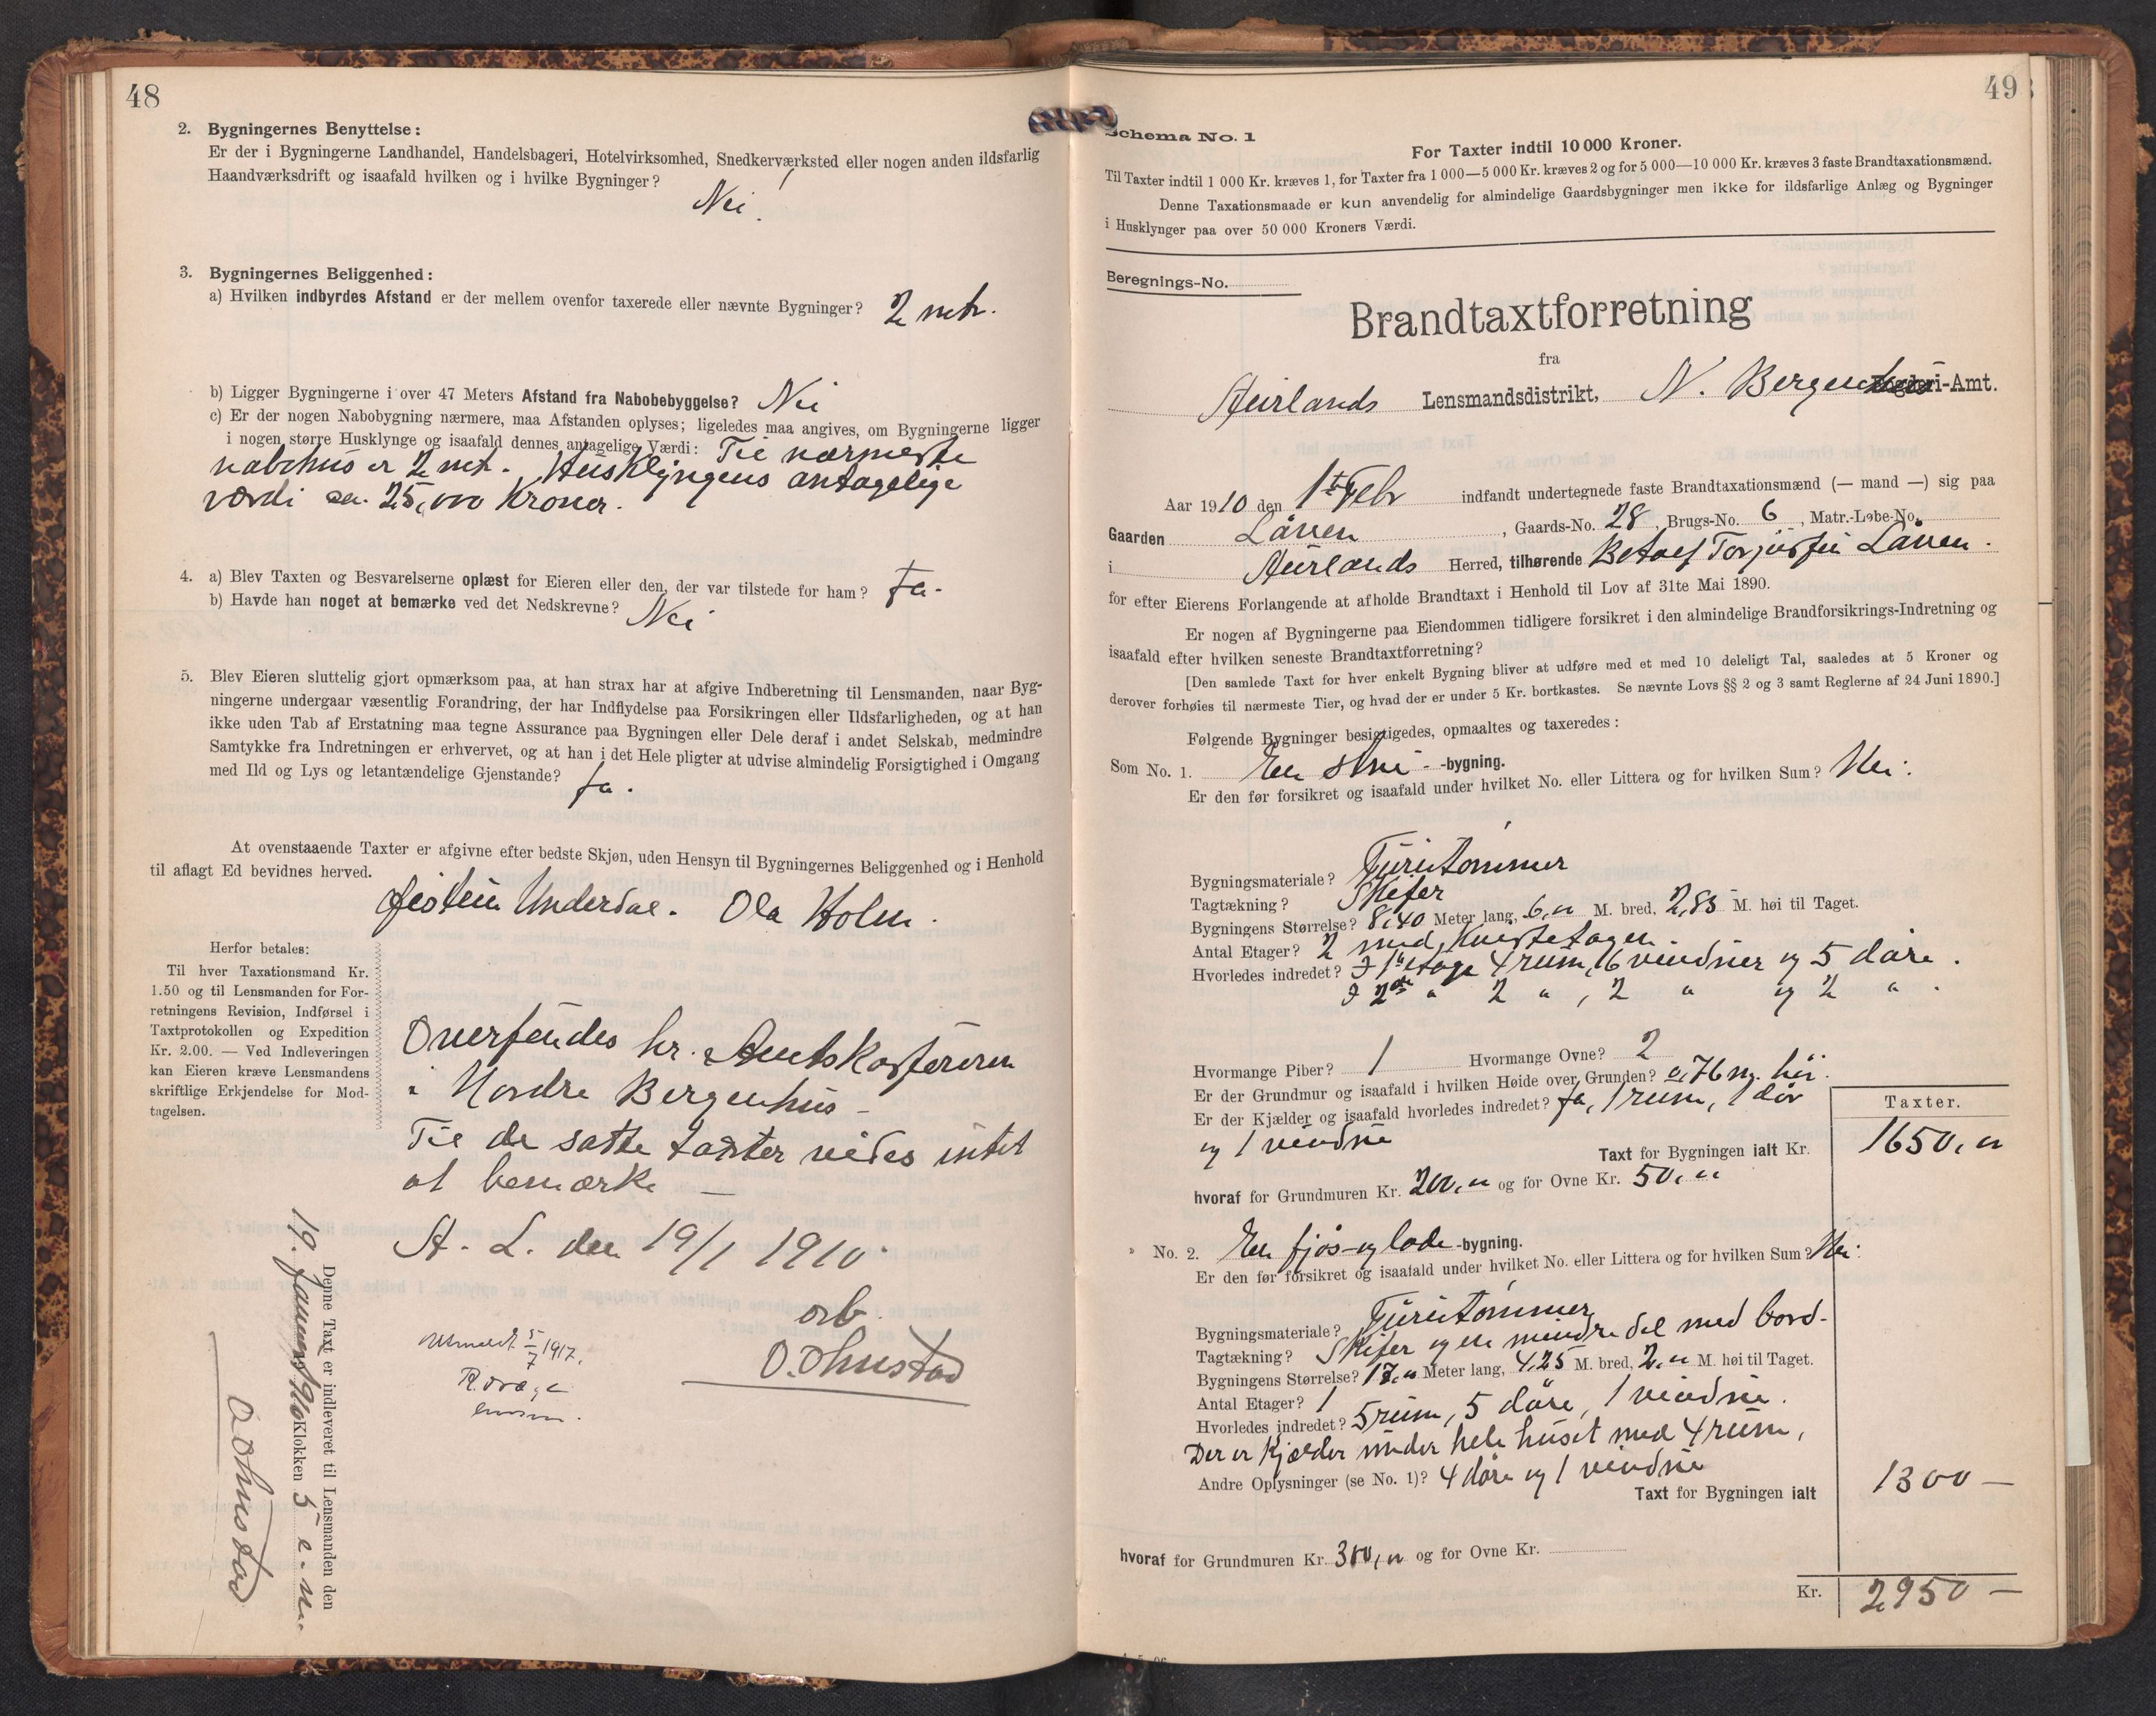 48
2. Bygningernes Benyttelse:
Er der i Bygningerne Landhandel, Handelsbageri, Hotelvirksomhed, Snedkerværksted eller nogen anden ildsfarlig
Haandværksdrift og isaafald hvilken og i hvilke Bygninger?
Nei.
3. Bygningernes Beliggenhed:
a) Hvilken indbyrdes Afstand er der mellem ovenfor taxerede eller nævnte Bygninger? 2 mtr.
b) Ligger Bygningerne i over 47 Meters Afstand fra Nabobebyggelse? Nei
c) Er der nogen Nabobygning nærmere, maa Afstanden oplyses; ligeledes maa angives, om Bygningerne ligger
i nogen større Husklynge og isaafald dennes antagelige Værdi: Til nærmeste
nabohus er 2 mtr. Husklyngens antagelige
værdi ca. 25,000 Kroner.
4. a) Blev Taxten og Besvarelserne oplæst for Eieren eller den, der var tilstede for ham? Ja.
b) Havde han noget at bemærke ved det Nedskrevne? Nei
5. Blev Eieren sluttelig gjort opmærksom paa, at han strax har at afgive Indberetning til Lensmanden, naar Byg-
ningerne undergaar væsentlig Forandring, der har Indflydelse paa Forsikringen eller Ildsfarligheden, og at han
ikke uden Tab af Erstatning maa tegne Assurance paa Bygningen eller Dele deraf i andet Selskab, medmindre
Samtykke fra Indretningen er erhvervet, og at han i det Hele pligter at udvise almindelig Forsigtighed i Omgang
med Ild og Lys og letantændelige Gjenstande? Ja.
At ovenstaaende Taxter er afgivne efter bedste Skjøn, uden Hensyn til Bygningernes Beliggenhed og i Henhold
til aflagt Ed bevidnes herved.
Øistein Underdal. Ola Holm.
Herfor betales:
Til hver Taxationsmand Kr.
1.50 og til Lensmanden for For-
retningens Revision, Indførsel i
Taxtprotokollen og Expedition
Kr. 2.00. — Ved Indleveringen
kan Eieren kræve Lensmandens
skriftlige Erkjendelse for Mod-
tagelsen.
Oversendes hr. Amtskasereren
i Nordre Bergenhus —
Til de satte taxter vides intet
at bemærke —
A. L. den 19/1 1910.
orb
O. Ohnstad
Utmeldt 5/7 1917.
Denne Taxt er indleveret til Lensmanden den
19. januar 1910 Klokken 5 e.m.
O Ohnstad
49
Schema No. 1
For Taxter indtil 10 000 Kroner.
Til Taxter indtil 1 000 Kr. kræves 1, for Taxter fra 1 000—5 000 Kr. kræves 2 og for 5 000—10 000 Kr. kræves 3 faste Brandtaxationsmænd.
Denne Taxationsmaade er kun anvendelig for almindelige Gaardsbygninger men ikke for ildsfarlige Anlæg og Bygninger
i Husklynger paa over 50 000 Kroners Værdi.
Beregnings-No.
Brandtaxtforretning
fra
Aurlands Lensmandsdistrikt, N. Bergenhus Fogderi-Amt.
Aar 1910 den 1ste Febr indfandt undertegnede faste Brandtaxationsmænd (— mand —) sig paa
Gaarden Låven, Gaards-No. 28, Brugs-No. 6, Matr.-Løbe-No.
i Aurlands Herred, tilhørende Botolf Torjusen Låven.
for efter Eierens Forlangende at afholde Brandtaxt i Henhold til Lov af 31te Mai 1890.
Er nogen af Bygningerne paa Eiendommen tidligere forsikret i den almindelige Brandforsikrings-Indretning og
isaafald efter hvilken seneste Brandtaxtforretning?
[Den samlede Taxt for hver enkelt Bygning bliver at udføre med et med 10 deleligt Tal, saaledes at 5 Kroner og
derover forhøies til nærmeste Tier, og hvad der er under 5 Kr. bortkastes. Se nævnte Lovs §§ 2 og 3 samt Reglerne af 24 Juni 1890.]
Følgende Bygninger besigtigedes, opmaaltes og taxeredes:
Som No. 1. En stue-bygning.
Er den før forsikret og isaafald under hvilket No. eller Littera og for hvilken Sum? Nei.
Bygningsmateriale? Furutømmer
Tagtækning? Skifer
Bygningens Størrelse? 8,40 Meter lang, 6,00 M. bred, 2,85 M. høi til Taget.
Antal Etager? 2 med Kvistetagen
Hvorledes indredet? I 1ste etage 4 rum, 6 vinduer og 5 døre.
I 2den " 2 ", 2 " og 2 ".
Hvormange Piber? 1 Hvormange Ovne? 2
Er der Grundmur og isaafald i hvilken Høide over Grunden? 0,76 m. høi.
Er der Kjælder og isaafald hvorledes indredet? Ja, 1 rum, 1 dør
og 1 vindue
Taxter.
Taxt for Bygningen ialt Kr. 1650,00
hvoraf for Grundmuren Kr. 200,00 og for Ovne Kr. 50,00
No. 2. En fjøs- og lade-bygning.
Er den før forsikret og isaafald under hvilket No. eller Littera og for hvilken Sum? Nei.
Bygningsmateriale? Furutømmer
Tagtækning? Skifer og en mindre del med bord.
Bygningens Størrelse? 17,00 Meter lang, 4,25 M. bred, 2,00 M. høi til Taget.
Antal Etager? 1
Hvorledes indredet? 5 rum, 5 døre, 1 vindue.
Der er Kjælder under hele huset med 4 rum,
Andre Oplysninger (se No. 1)? 4 døre og 1 vindue
Taxt for Bygningen ialt 1300 —
hvoraf for Grundmuren Kr. 300,00 og for Ovne Kr.
Kr. 2950 —